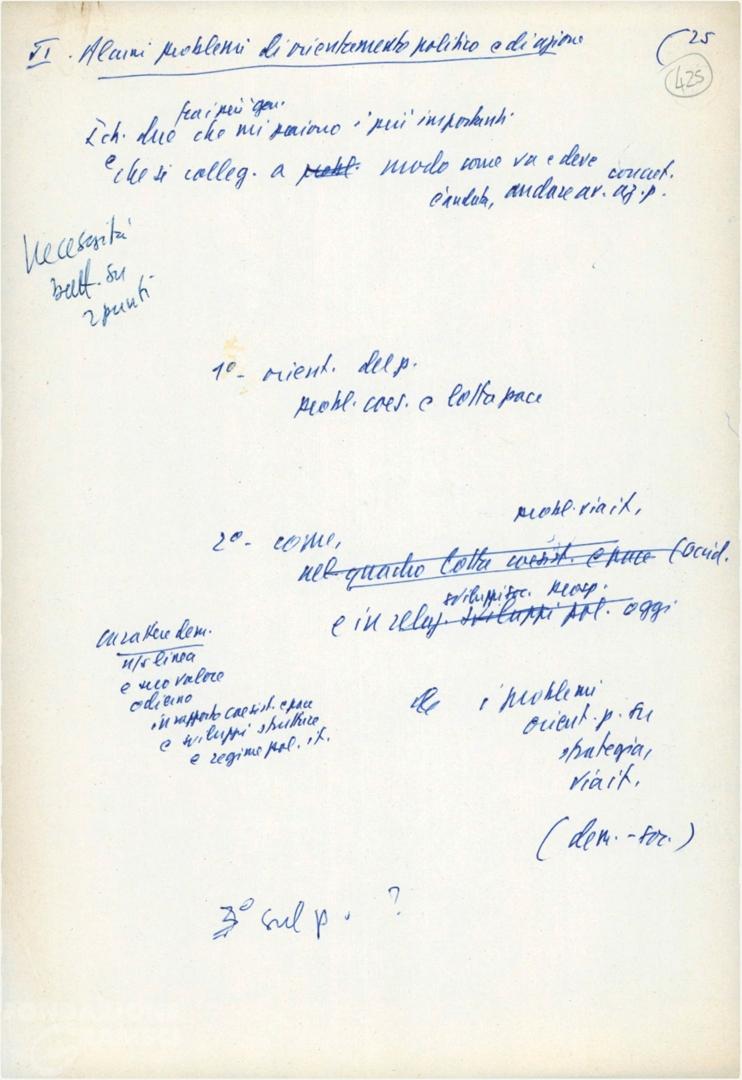 II. Alcuni problemi di orientamento politico e di azione
25
425
fra i più gen.
I ch. due che mi paiono i più importanti
e che si colleg. a probl. modo come va e deve concret.
è andata, andare av. az. p.
Necessità
batt. su
2 punti
1º - orient. del p.
probl. coes. e lotta pace
probl. via it.
2º - come,
nel quadro lotta coesist. e pace (occid.
sviluppi soc. prosp.
e in relaz. sviluppi pol. oggi
carattere dem.
n/s linea
e suo valore
odierno
in rapporto coesist. e pace
e sviluppi strutture
e regime pol. it.
i problemi
orient. p. su
strategia,
via it.
(dem. - soc.)
3º sul p. ?